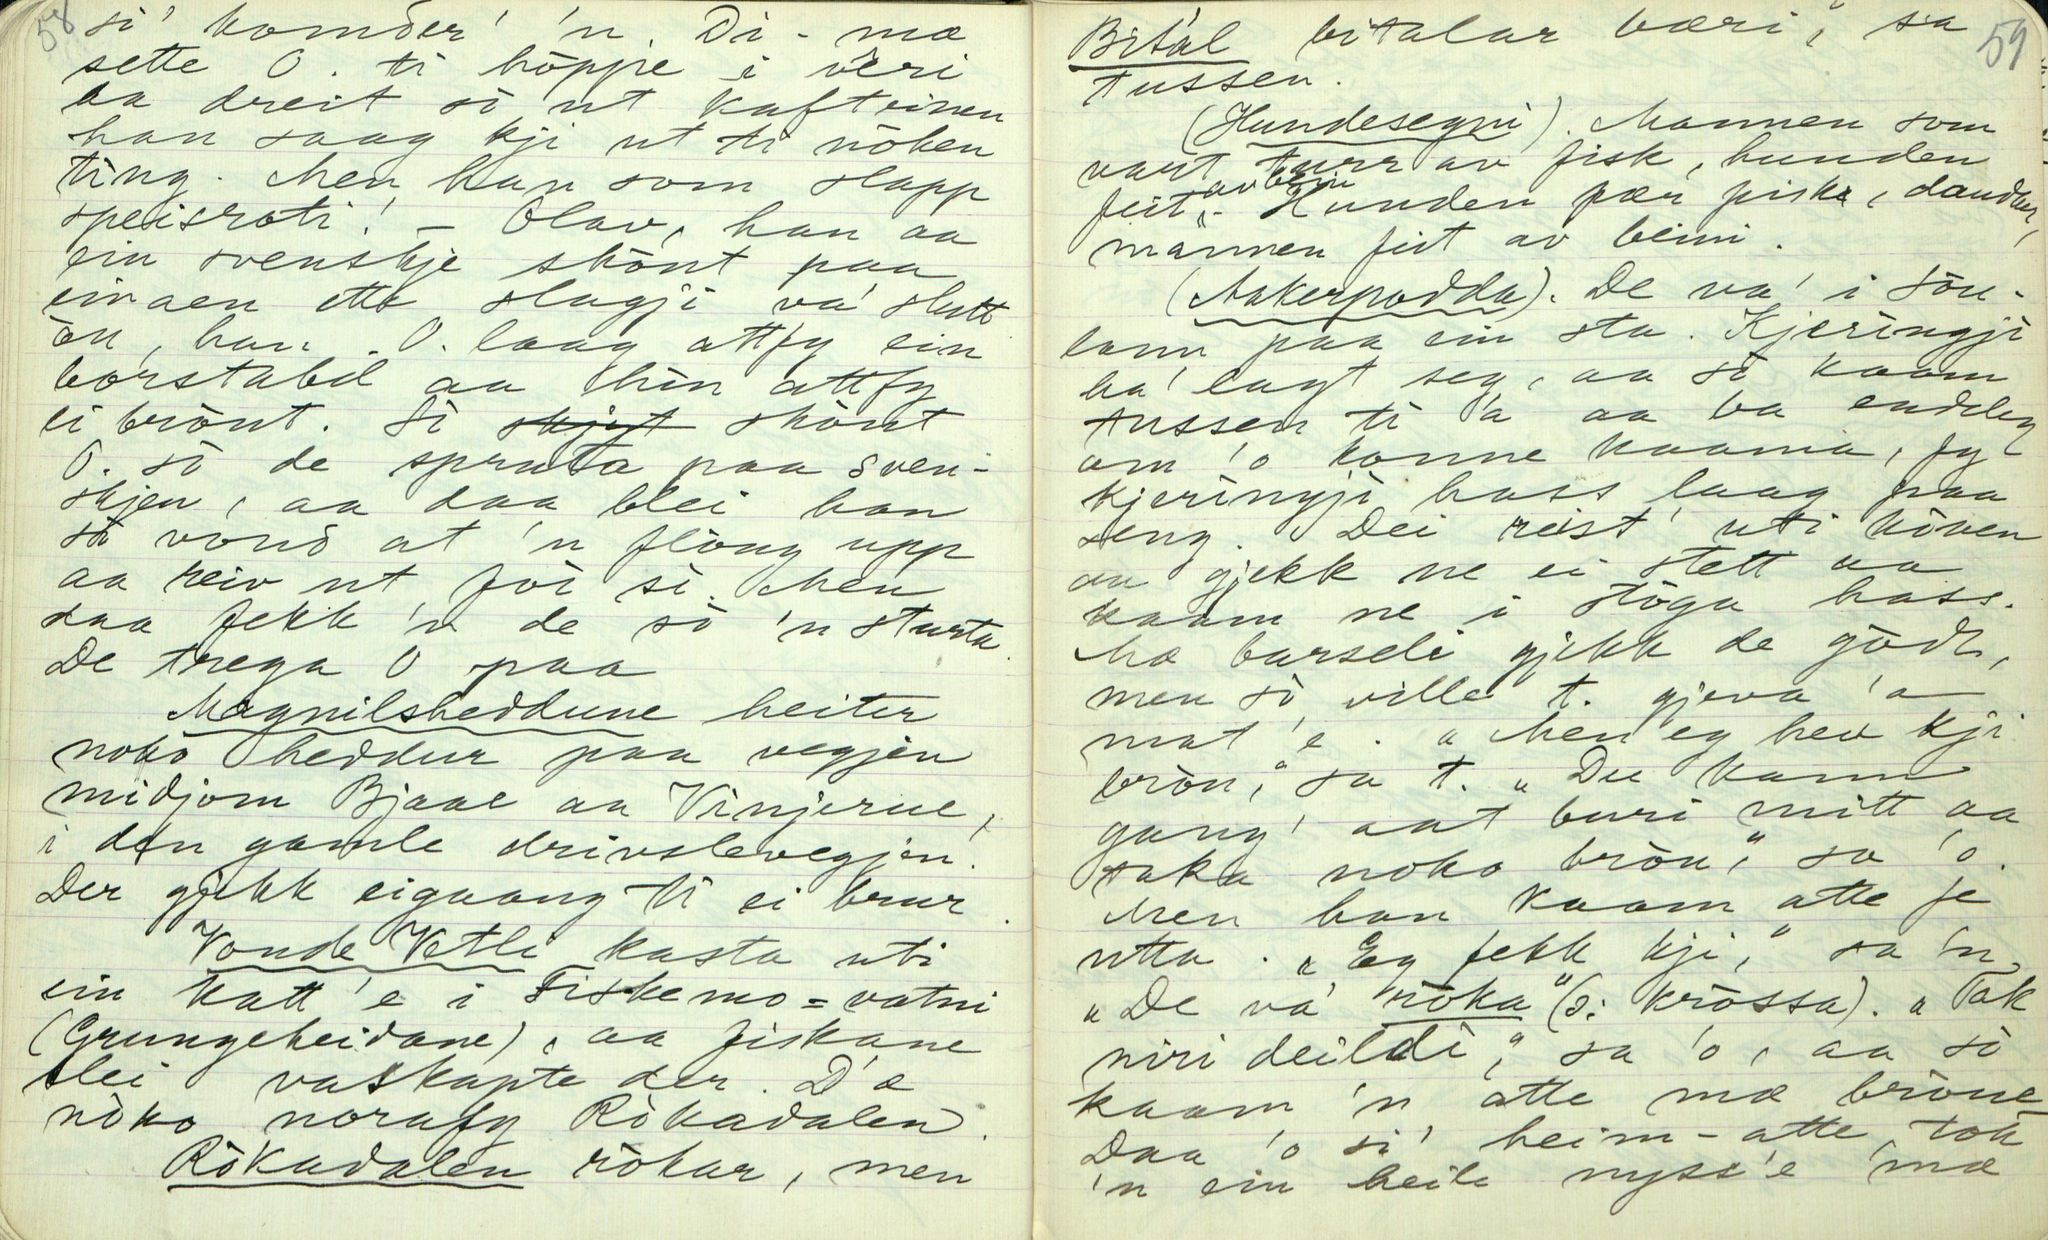 58
si' komder' 'n. Di- mæ
sette O. ti höppe i veri
aa dreit så ut kafteinen
han saag kji ut ti nöken
ting. Men han som slapp
speisroti! – Olav, han aa
ein svenskje skönt paa
einaen ette slagji va' slutt
än, han. O. laag attfy ein
borstabil aa hin attfy
ei brönt. Så skjøt skönt
O. så de spruta paa sven-
skjen, aa daa blei han
så vond at 'n flöug upp
aa reiv ut för si. Men
daa fekk 'n de så 'n sturta.
De trega O paa
Magnilsheddune heiter
noko heddur paa vegjen
midjom Bjaae aa Vinjerue,
i den gamle drivslevegjen.
Der gjekk eigaang ti ei brur.
Vonde Vetli kasta uti
ein katt 'e i Fiskemo=vatni
(Grungeheidane), aa fiskane
blei vaskapte der. D'æ
nöko norafy Rökadalen.
Rökadalen rökar, men
59
Bital bitalar bæri", sa
tussen.
(Hundesegni). Mannen som
vart turr av fisk, hunden
feit av beini. – Hunden fær fiskr, daudur,
mannen feit av beini.
(Aakerpodda). De va' i Sön-
lann paa ein sta. Kjeringji
ha' lagt seg, aa så kaam
tussen ti 'a aa ba endeleg
om 'o konne kaama, fy
kjeringji hass laag paa
seng. Dei reist' uti håven
aa gjekk ne ei stett aa
kaam ne i stöga hass.
Mæ barseli gjekk de godt,
men så ville t. gjeva 'a
mat 'e. „Men eg hev kji
bröu," sa t. „Du kann
gang' aat buri mitt aa
taka noko bröu," sa 'o.
Men han kaam atte je
utta. „Eg fekk kji," sa 'n,
„De va' röka" (ɔ: krossa). „Tak
niri deildi," sa 'o, aa så
kaam 'n atte mæ bröue
Daa 'o si' heim-atte tok
'n ein heile nyss'e mæ